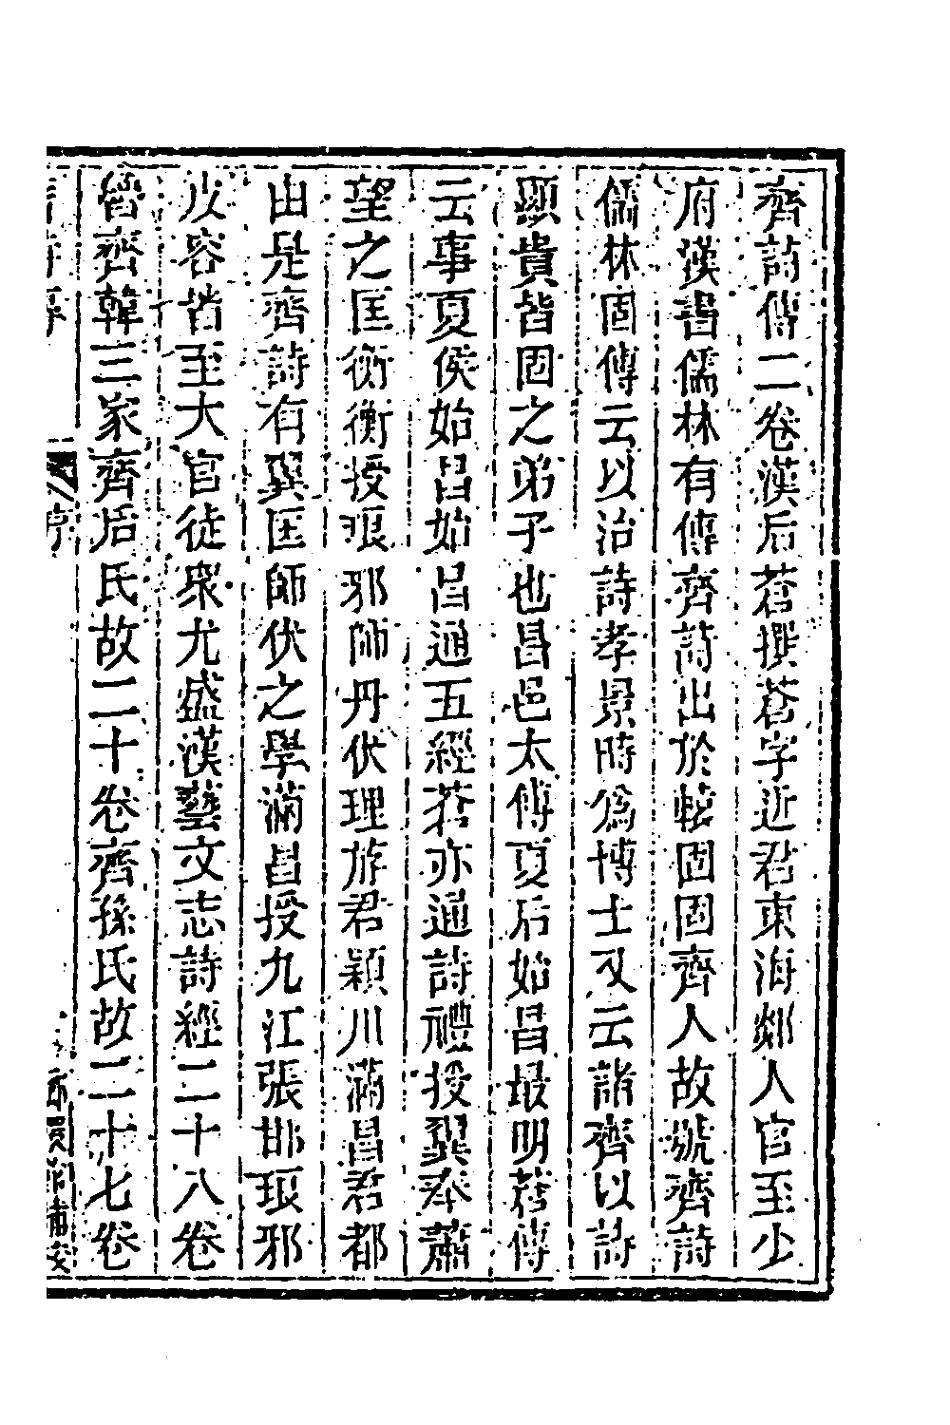 齊詩傳二卷漢后蒼撰蒼字近君東海郯人官至少
府漢書儒林有傳齊詩出於轅固固齊人故號齊詩
儒林固傳云以治詩孝景時爲博士又云諸齊以詩
顯貴皆固之弟子也昌邑太傅夏后始昌最明蒼傳
云事夏侯始昌始昌通五經蒼亦通詩禮授翼奉蕭
望之匡衡衡授琅邪師丹伏理斿君潁川滿昌君都
由是齊詩有翼匡師伏之學滿昌授九江張邯琅邪
皮容皆至大官徒衆尤盛漢藝文志詩經二十八卷
魯齊韓三家齊后氏故二十卷齊孫氏故二十七卷
序